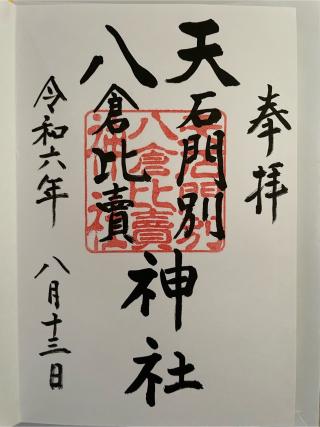 奉拝
天石門別
八倉比賣
神社
令和六年 八月十三日